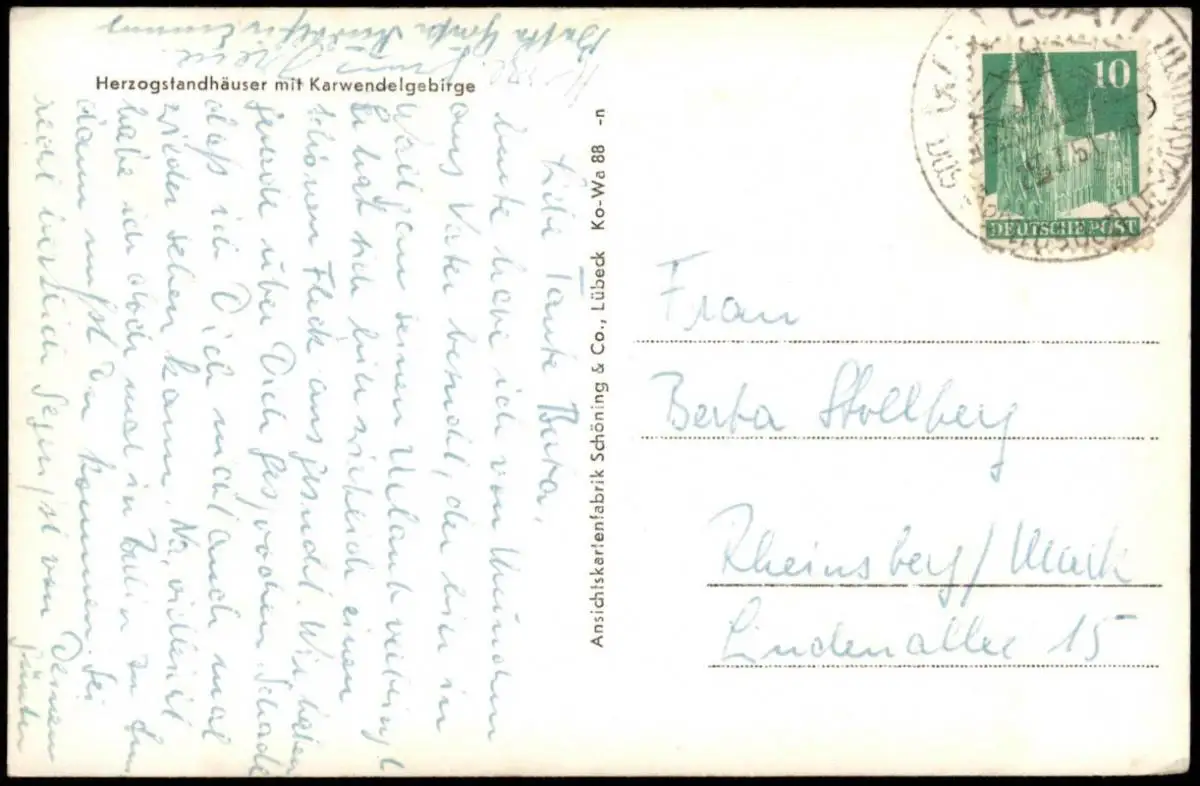 Herzogstandhäuser mit Karwendelgebirge
Liebe Tante Berta,
heute habe ich von München
aus Vater besucht, der hier in
Walchens seinen Urlaub verbringt
Er hat sich hier wirklich einen
schönen Fleck ausgesucht. Wir haben
gerade über Dich gesprochen. Schade
daß ich Dich nicht auch mal
wieder sehen kann. Na, vielleicht
habe ich doch mal in Berlin zu tun
dann mußt Du kommen. Sei
recht herzlich gegrüßt von Deinem
Günter
Beste Grüße
Ansichtskartenfabrik Schöning & Co., Lübeck Ko-Wa 88 -n
10
DEUTSCHE POST
Frau
Berta Stollberg
Rheinsberg/Mark
Lindenallee 15